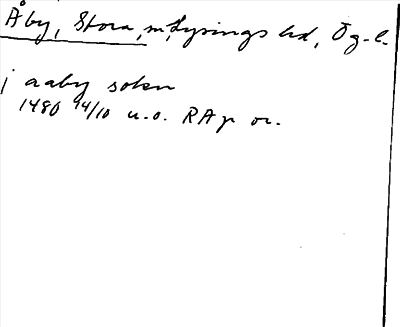 Åby, Stora, Lysings hd, Ög. l.
j aaby sokn
1480 14/10 u.o. RAp or.